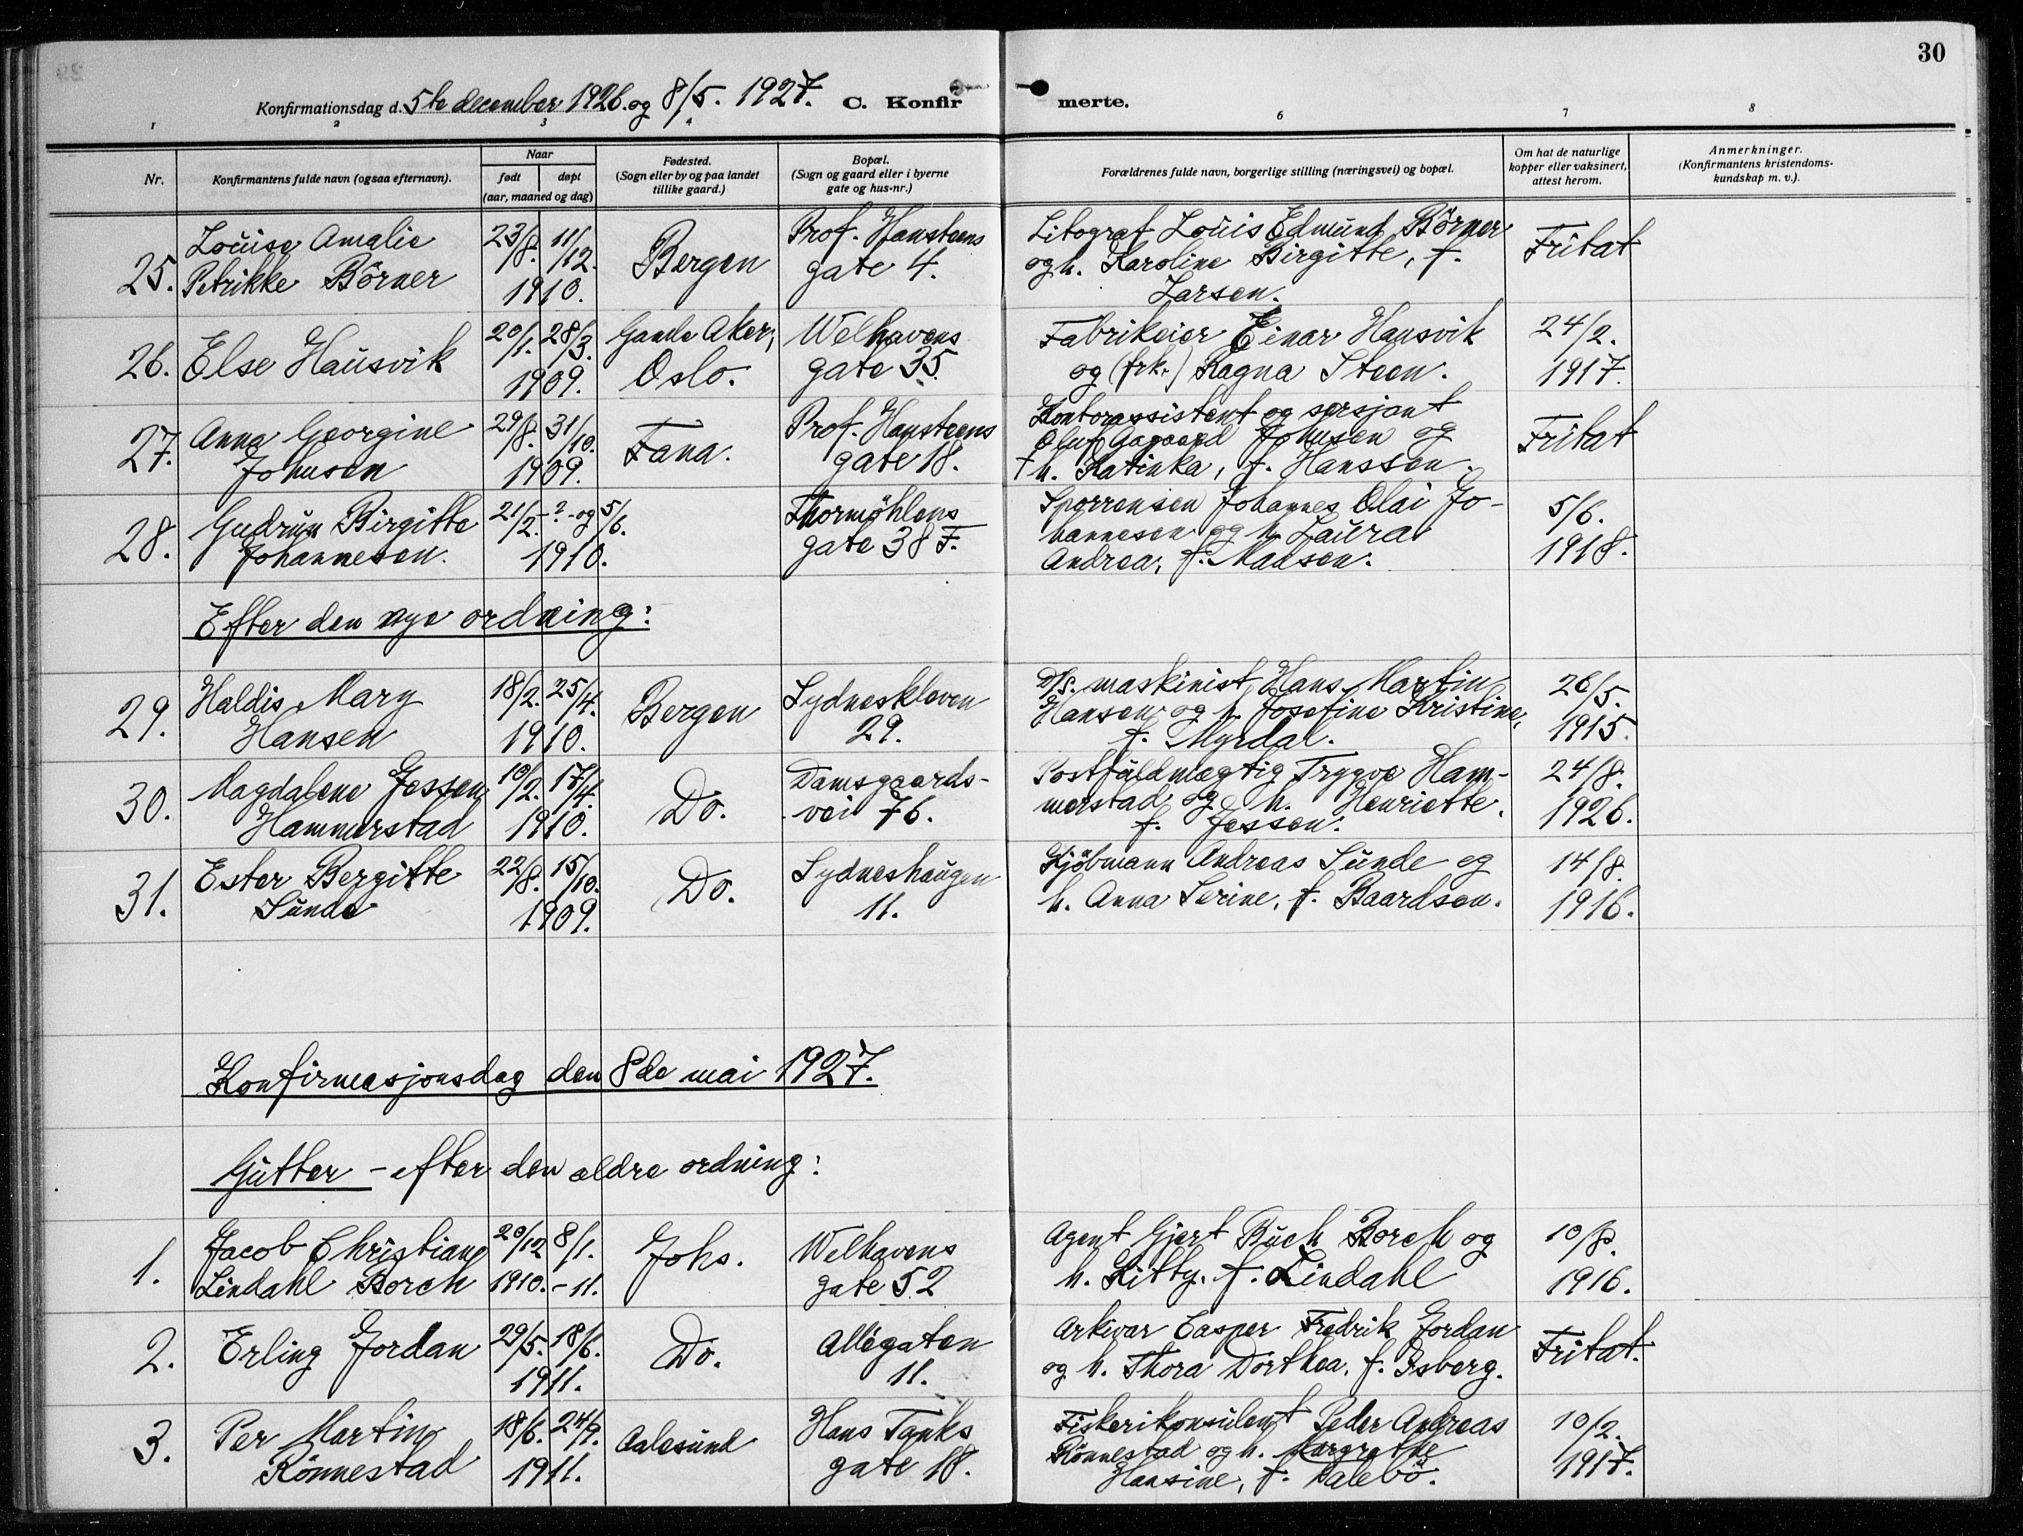 30
Konfirmationsdag d. 5te december 1926. og 8/5. 1927. C. Konfirmerte.
1 2 3 4 6 7 8
Nr.
Konfirmantens fulde navn (ogsaa efternavn).
Naar
født døpt
(aar, maaned og dag)
Fødested.
(Sogn eller by og paa landet
tillike gaard.)
Bopæl.
(Sogn og gaard eller i byerne
gate og hus-nr.)
Forældrenes fulde navn, borgerlige stilling (næringsvei) og bopæl.
Om hat de naturlige
kopper eller vaksinert,
attest herom.
Anmerkninger.
(Konfirmantens kristendoms-
kundskap m. v.).
25. Louise Amalie
Petrikke Börner
23/8. 11/12.
1910.
Bergen
Prof. Hansteens
gate 4.
Litograf Louis Edmund Börner
og h. Karoline Birgitte, f.
Larsen.
Fritat
26. Else Hausvik
20/1. 28/3.
1909.
Gamle Aker,
Oslo.
Welhavens
gate 35.
Fabrikeier Einar Hausvik
og (frk.) Ragna Steen.
24/2.
1917.
27. Anna Georgine
Johnsen
29/8. 31/10.
1909.
Fana.
Prof. Hansteens
gate 18.
Kontorassistent og sersjant
Oluf Johnsen og
† h. Katinka, f. Hanssen.
Fritat
28. Gudrun Birgitte
Johannesen.
21/2. -?- og 5/6.
1910.
Thormöhlens
gate 38 F.
Johannes Olai Jo-
hannesen og h. Laura
Andrea, f. Madsen.
5/6.
1918.
Efter den nye ordning:
29. Haldis Mary
Hansen
18/2. 25/4.
1910.
Bergen
Sydneskleven
29.
D/s. maskinist Hans Martin
Hansen og h. Josefine Kristine,
f. Myrdal.
26/5.
1915.
30. Magdalene Jessen
Hammerstad
10/2. 17/4.
1910.
Do.
Damsgaards-
vei 76.
Postfuldmægtig Trygve Ham-
merstad og h. Henriette,
f. Jessen.
24/8.
1926.
31. Ester Bergitte
Sunde
22/8. 15/10.
1909.
Do.
Sydneshaugen
11.
Kjöbmann Andreas Sunde og
h. Anna Serine, f. Baardsen.
14/8.
1916.
Konfirmasjonsdag den 8de mai 1927.
Gutter - efter den ældre ordning:
1. Jacob Christian
Lindahl Borch
20/12 8/1.
1910. - 11.
Johs.
Welhavens
gate 52
Agent Gjert Buch Borch og
h. Kitty, f. Lindahl
10/8.
1916.
2. Erling Jordan
29/5. 18/6.
1911.
Do.
Allégaten
11.
Arkivar Casper Fredrik Jordan
og h. Thora Dorthea, f. Isberg.
Fritat.
3. Per Martin
Rönnestad
18/6. 24/9.
1911.
Aalesund
Hans Tanks
gate 18.
Fiskerikonsulent Peder Andreas
Rönnestad og h. Margrethe
Hansine, f. Dalebö.
10/2.
1917.